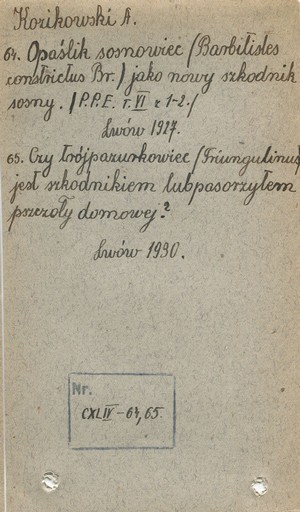 Kozikowski A.
64. Opaślik sosnowiec /Barbitistes
constrictus Br./ jako nowy szkodnik
sosny. /P.P.E. T. VI z 1-2./
Lwów 1927.
65. Czy trójpazurkowiec /Triungulinus/
jest szkodnikiem lub pasorzytem
pszczoły domowej?
Lwów 1930.
Nr.
CXLIV-64,65.